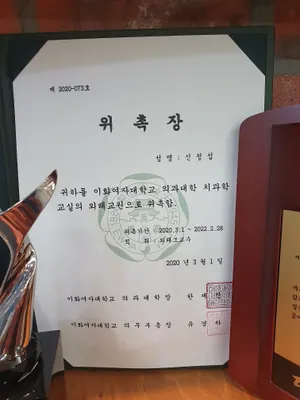 제 2020-073호
위 촉 장
성명 : 신정섭
귀하를 이화여자대학교 의과대학 치과학
교실의 외래교원으로 위촉함.
위촉기간 : 2020.3.1 ~ 2022.2.28
직 위 : 외래조교수
2020 년 3 월 1 일
이화여자대학교 의과대학장 한 재
이화여자대학교 의무부총장 유 경 하